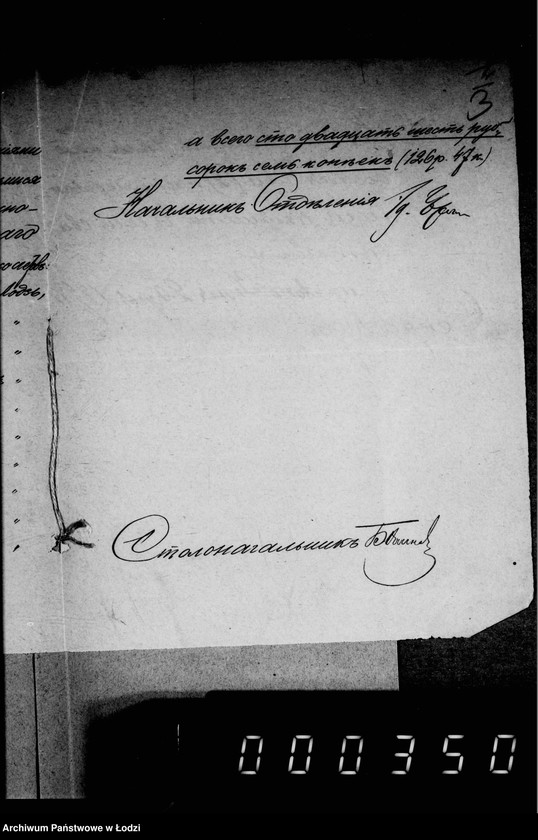 3
а всего сто двадцать шесть руб.
сорокъ семь копѣекъ (126 р. 47 к.)
Начальникъ Отдѣленія
Столоначальникъ
наго
водѣ,
000350
Archiwum Państwowe w Łodzi